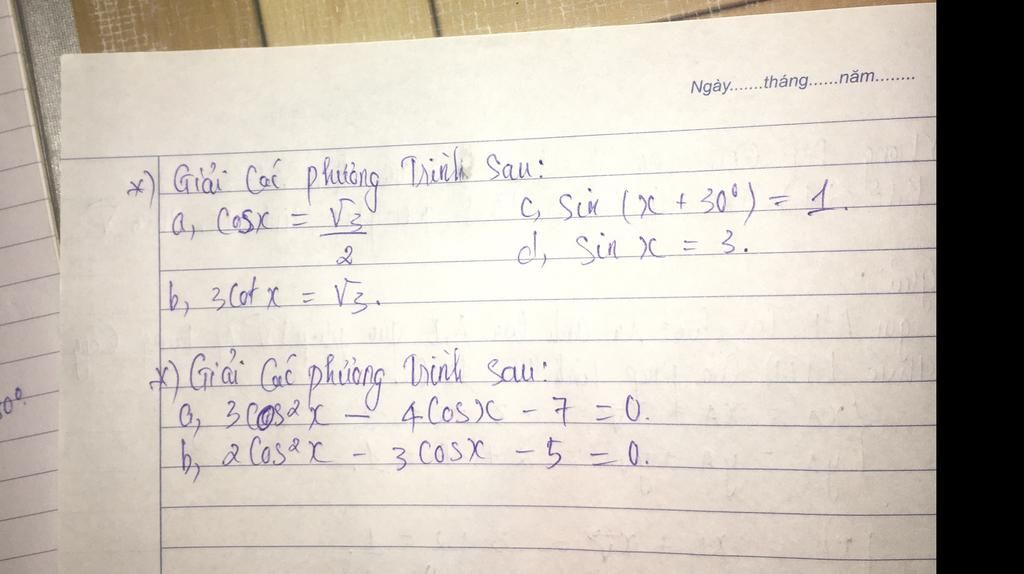 Ngày.......tháng......năm........
*) Giải các phương trình sau:
a, cosx = √3/2
c, sin (x + 30°) = 1.
d, sin x = 3.
b, 3cot x = √3.
*) Giải các phương trình sau:
a, 3cos²x - 4cosx - 7 = 0.
b, 2cos²x - 3cosx - 5 = 0.